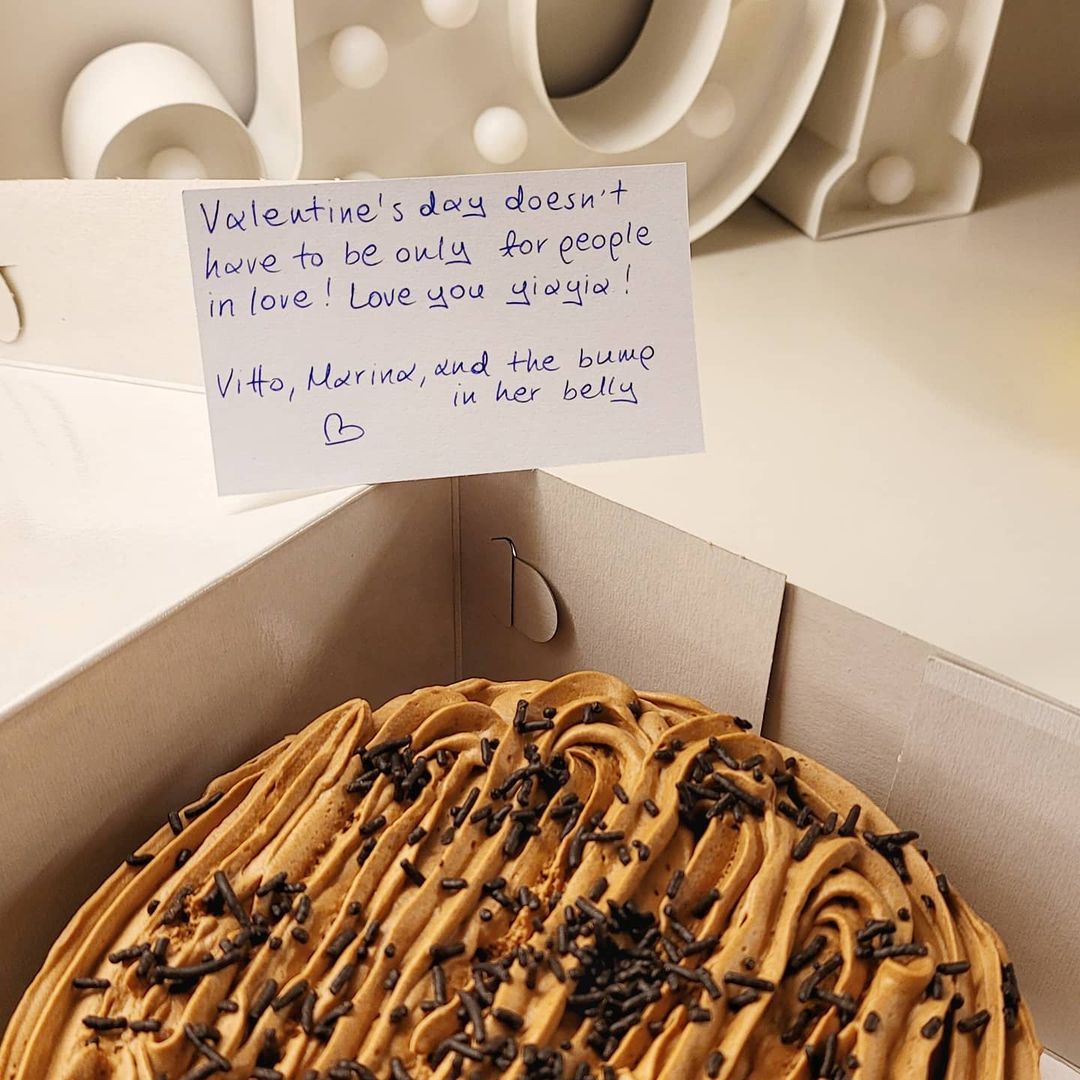 Valentine's day doesn't
have to be only for people
in love! Love you yiayia!
Vitto, Marina, and the bump
in her belly